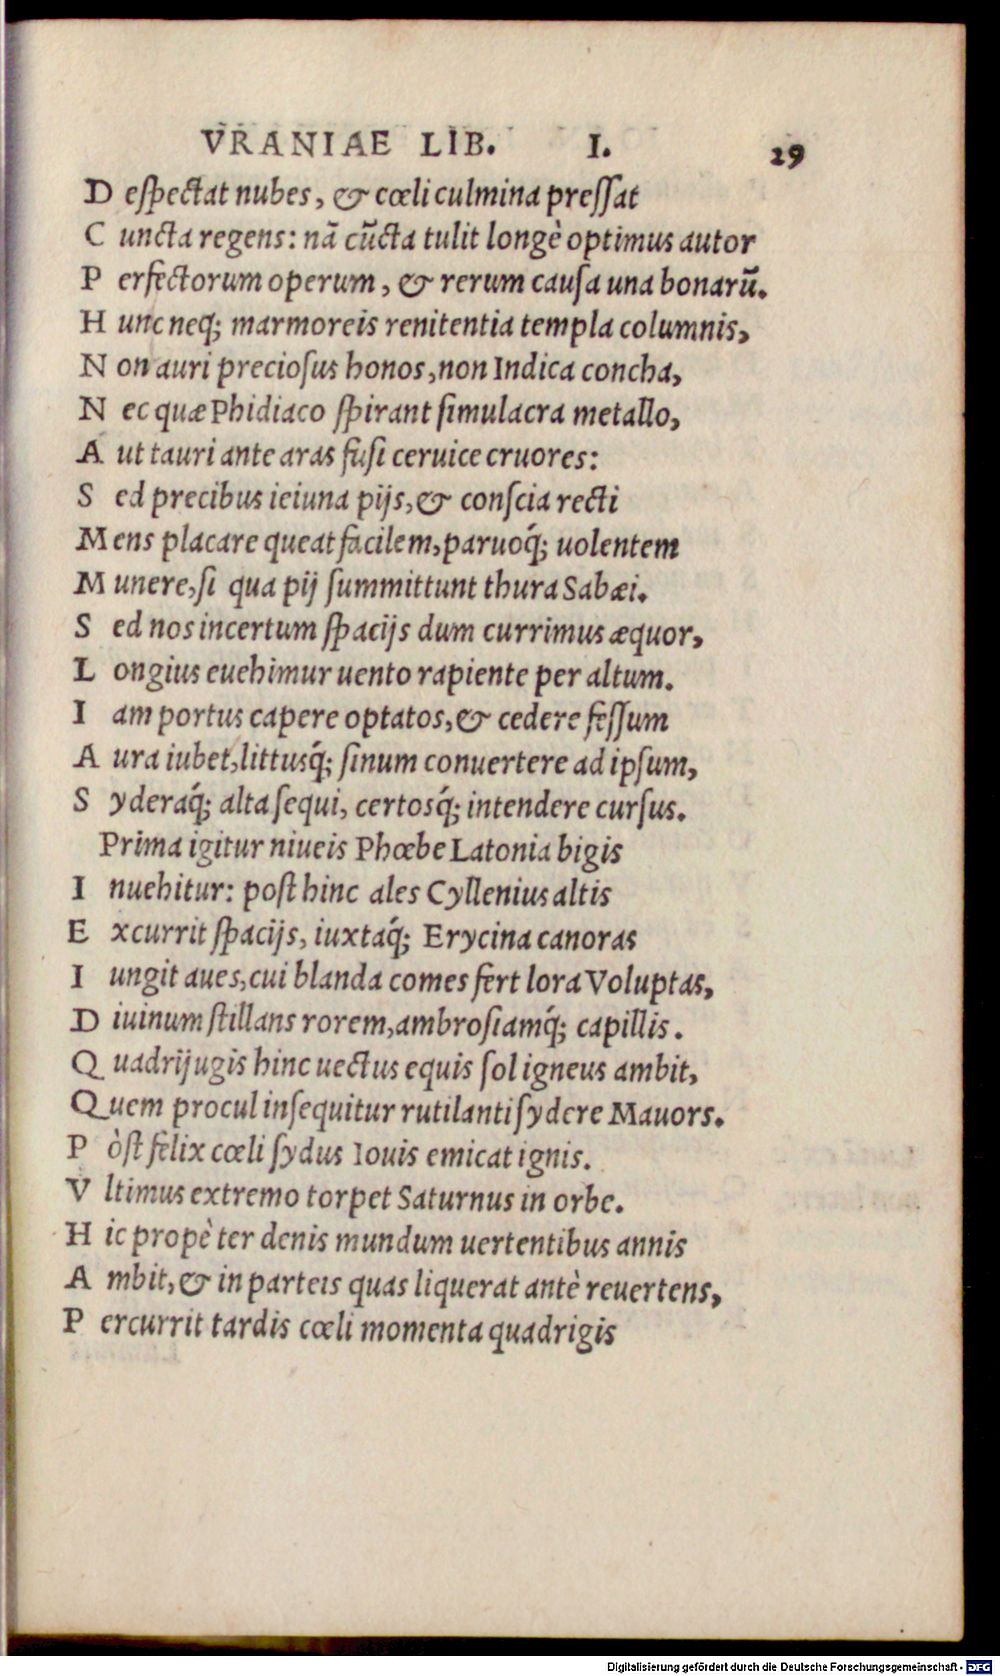 VRANIAE LIB. I. 29
D espectat nubes, & cœli culmina pressat
C uncta regens: nā cūcta tulit longè optimus autor
P erfectorum operum, & rerum causa una bonarū.
H unc neq; marmoreis renitentia templa columnis,
N on auri preciosus honos, non Indica concha,
N ec quæ Phidiaco spirant simulacra metallo,
A ut tauri ante aras fusi ceruice cruores:
S ed precibus ieiuna pijs, & conscia recti
M ens placare queat facilem, paruoq́; uolentem
M unere, si qua pij summittunt thura Sabæi.
S ed nos incertum spacijs dum currimus æquor,
L ongius euehimur uento rapiente per altum.
I am portus capere optatos, & cedere fessum
A ura iubet, littusq́; sinum conuertere ad ipsum,
S yderaq́; alta sequi, certosq́; intendere cursus.
Prima igitur niueis Phœbe Latonia bigis
I nuehitur: post hinc ales Cyllenius altis
E xcurrit spacijs, iuxtaq́; Erycina canoras
I ungit aues, cui blanda comes fert lora Voluptas,
D iuinum stillans rorem, ambrosiamq́; capillis.
Q uadrijugis hinc uectus equis sol igneus ambit,
Q uem procul insequitur rutilanti sydere Mauors.
P òst felix cœli sydus Iouis emicat ignis.
V ltimus extremo torpet Saturnus in orbe.
H ic propè ter denis mundum uertentibus annis
A mbit, & in parteis quas liquerat antè reuertens,
P ercurrit tardis cœli momenta quadrigis
Digitalisierung gefördert durch die Deutsche Forschungsgemeinschaft - DFG